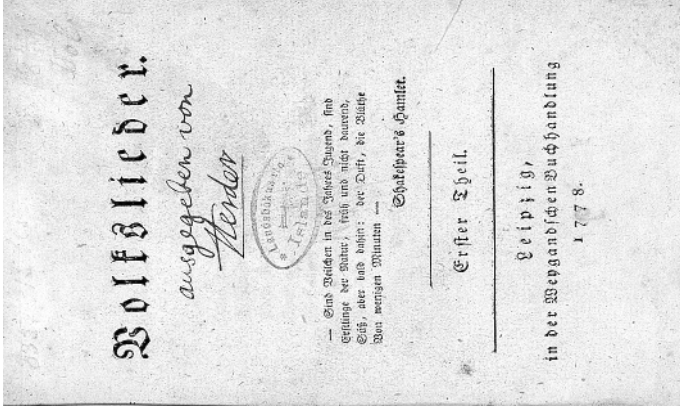 Volkslieder.
ausgegeben von
Herder
* Landsbókasafn *
Islands
— Sind Veilchen in des Jahres Jugend, sind
Erstlinge der Natur, früh und nicht daurend,
Süß, aber bald dahin: der Duft, die Blüthe
Von wenigen Minuten —
Shakespear's Hamlet.
Erster Theil.
Leipzig,
in der Weygandschen Buchhandlung
1778.